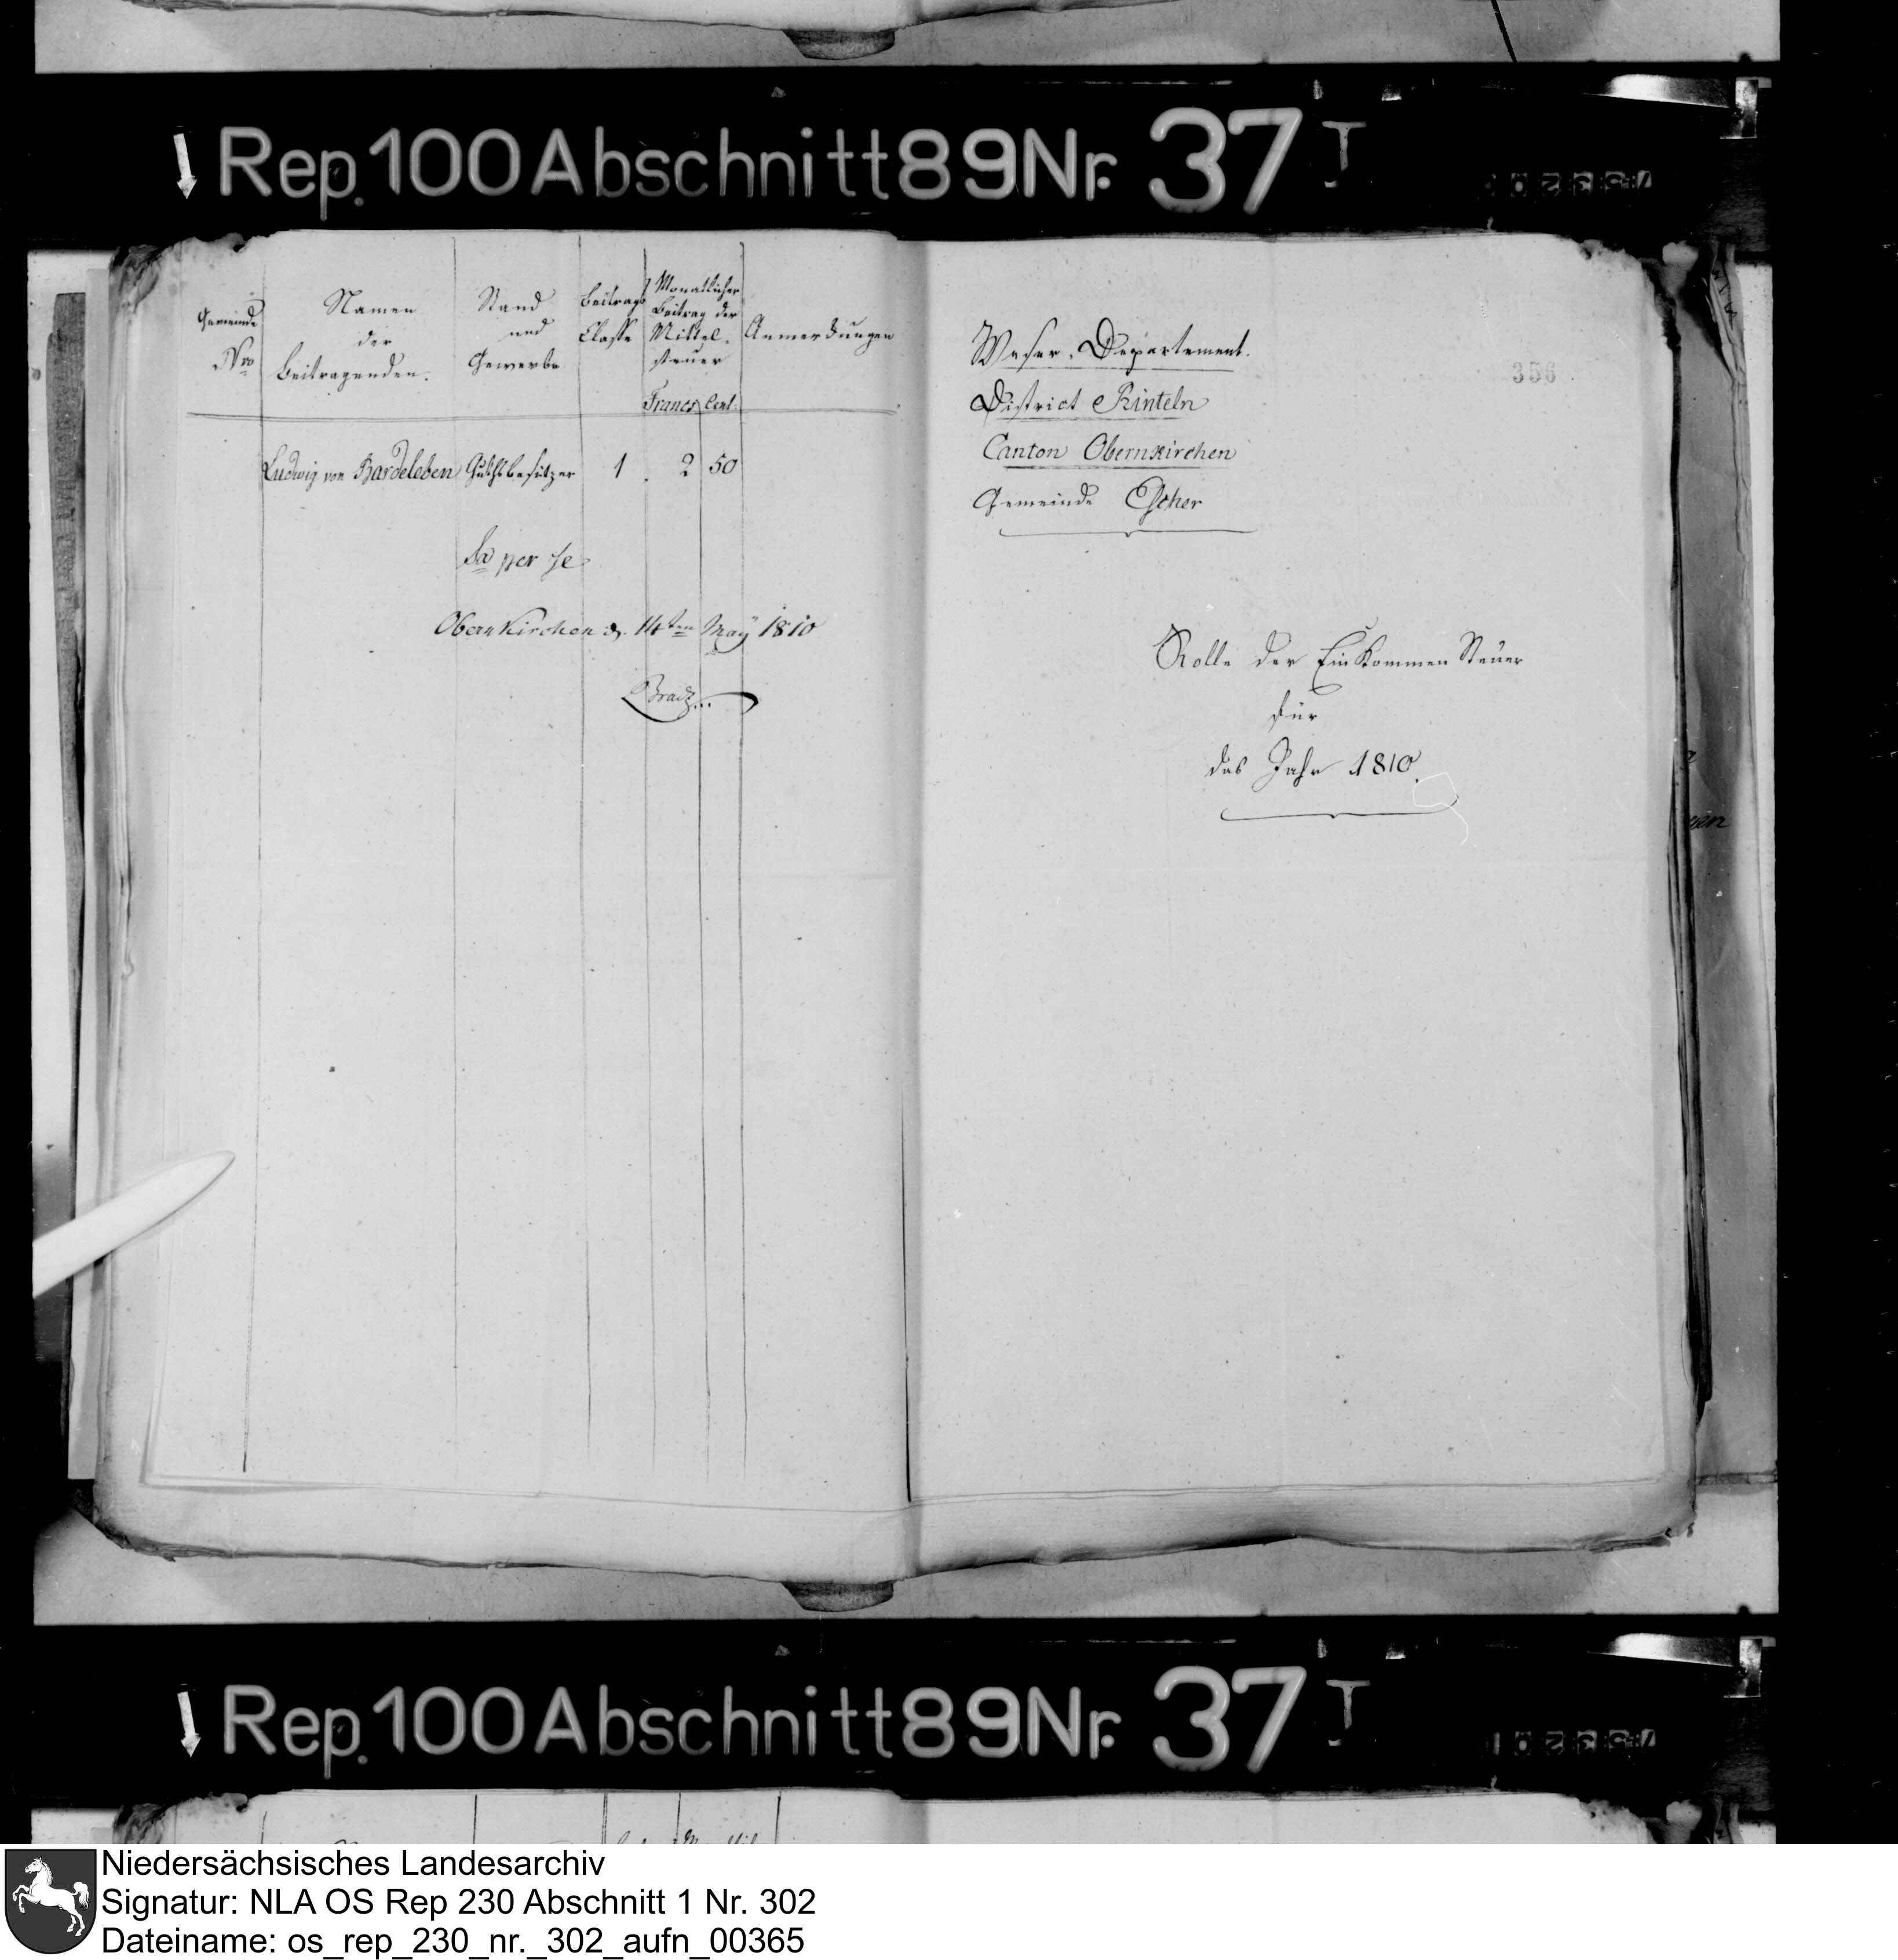 Rep. 100 Abschnitt 89 Nr. 37 I
Gemeinde
Nro
Namen
der
Beitragenden.
Stand
und
Gewerbe
Beitrags
Classe
Monatlicher
Beitrag der
Mittel-
steuer
Francs Cent.
Anmerkungen
Ludwig von Bardeleben Guthsbesitzer 1 . 2 50
Sa per se
Obernkirchen d. 14ten May 1810
356
Weser-Departement.
District Rinteln
Canton Obernkirchen
Gemeinde Escher
Rolle der Einkommen Steuer
für
das Jahr 1810.
Rep. 100 Abschnitt 89 Nr. 37 I
Niedersächsisches Landesarchiv
Signatur: NLA OS Rep 230 Abschnitt 1 Nr. 302
Dateiname: os_rep_230_nr._302_aufn_00365